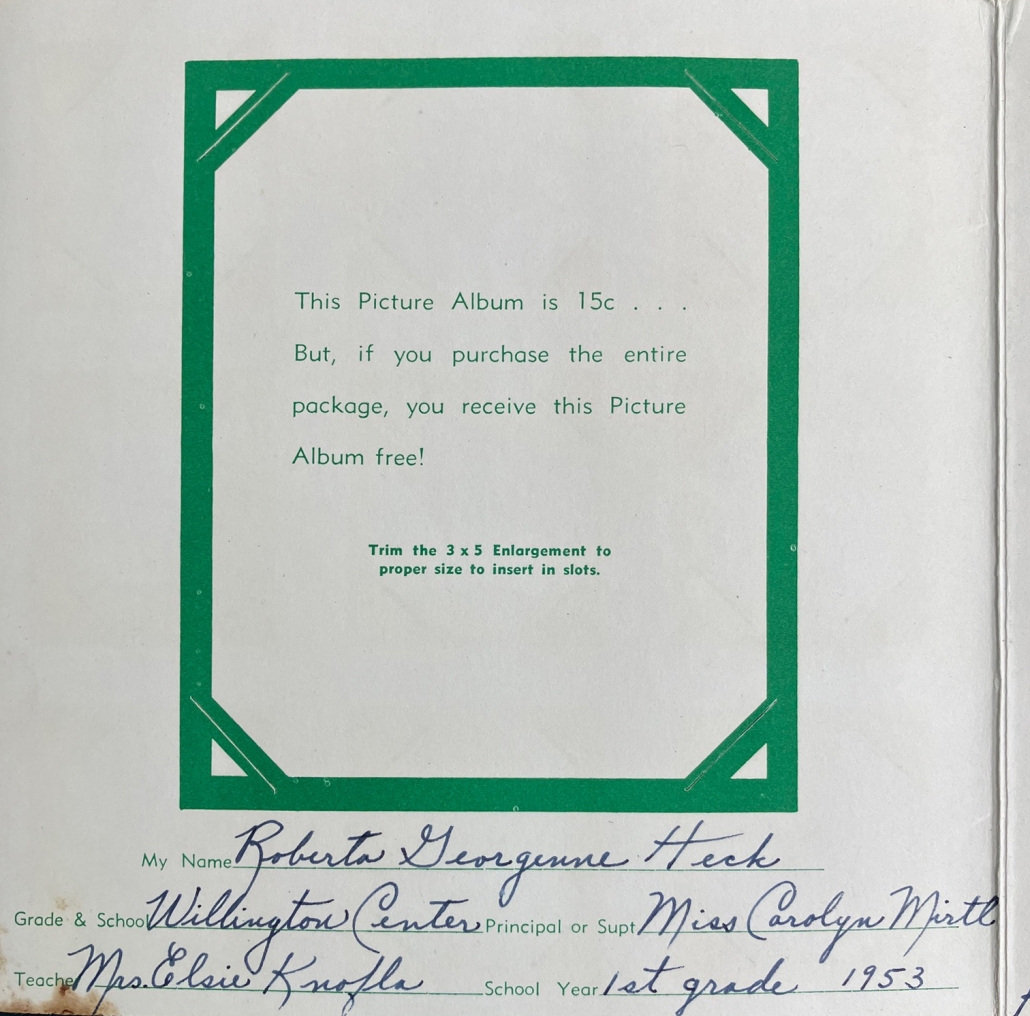 This Picture Album is 15c . . .
But, if you purchase the entire
package, you receive this Picture
Album free!
Trim the 3 x 5 Enlargement to
proper size to insert in slots.
My Name Roberta Georgenne Heck
Grade & School Willington Center Principal or Supt Miss Carolyn Mirtl
Teache Mrs. Elsie Knofla School Year 1st grade 1953